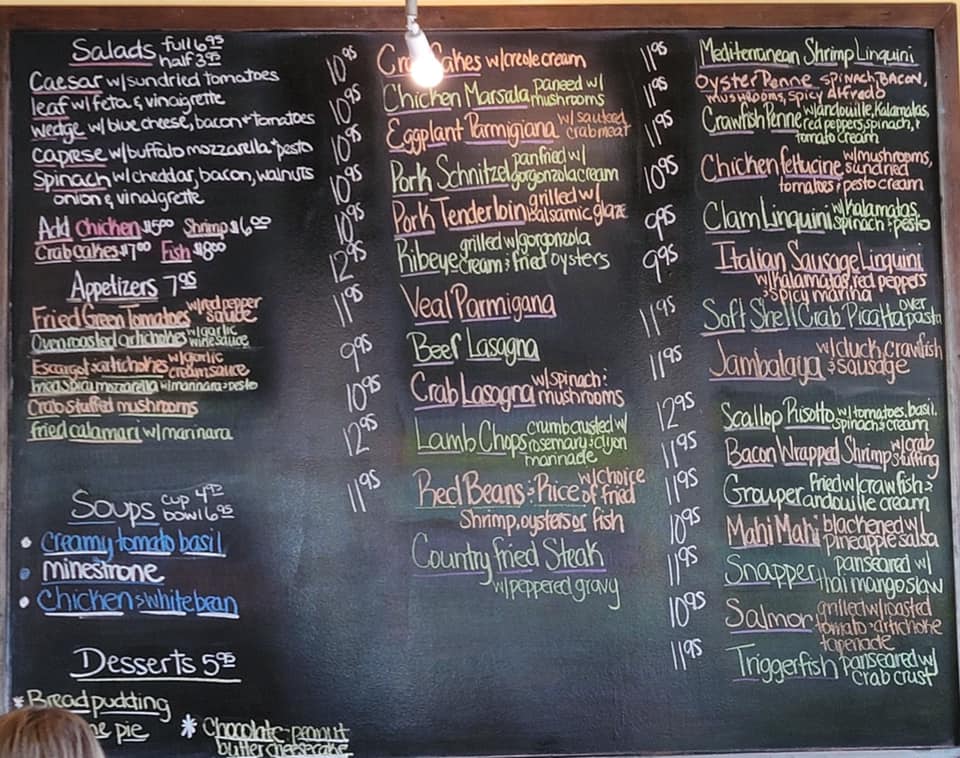 Salads full 6.95
half 3.95
Caesar w/sundried tomatoes
leaf w/feta & vinaigrette
wedge w/blue cheese, bacon + tomatoes
caprese w/buffalo mozzarella + pesto
Spinach w/cheddar, bacon, walnuts
onion & vinaigrette
Add Chicken $5.00 Shrimp $6.00
Crab cakes $7.00 Fish $8.00
Appetizers 7.95
Fried Green Tomatoes w/red pepper
sauce
Oven roasted artichokes w/garlic
wine sauce
Escargot & artichokes w/garlic
cream sauce
spicy mozzarella w/marinara & pesto
Crab stuffed mushrooms
fried calamari w/marinara
Soups cup 4.95
bowl 6.95
creamy tomato basil
minestrone
Chicken & white bean
Desserts 5.95
* Bread pudding
pie
* Chocolate-peanut
butter cheesecake
10.95 Crab Cakes w/creole cream
10.95 Chicken Marsala paneed w/
mushrooms
10.95 Eggplant Parmigiana w/sauteed
crabmeat
10.95 Pork Schnitzel panfried w/
gorgonzola cream
10.95 Pork Tenderloin grilled w/
balsamic glaze
12.95 Ribeye grilled w/gorgonzola
cream & fried oysters
11.95 Veal Parmigana
9.95 Beef Lasagna
10.95 Crab Lasagna w/spinach &
mushrooms
12.95 Lamb Chops crumb crusted w/
rosemary & dijon
marinade
11.95 Red Beans & Rice w/choice
of fried
Shrimp, oysters or fish
Country fried Steak
w/peppered gravy
11.95 Mediterranean Shrimp Linguini
11.95 Oyster Penne spinach, bacon,
mushrooms, spicy alfredo
11.95 Crawfish Penne w/andouille, Kalamatas,
red peppers, spinach, &
tomato cream
10.95 Chicken fettucine w/mushrooms,
sundried
tomatoes & pesto cream
9.95 Clam Linguini w/Kalamatas
spinach & pesto
9.95 Italian Sausage Linguini
w/Kalamatas, red peppers
& spicy marina
11.95 Soft Shell Crab Picatta over
pasta
11.95 Jambalaya w/duck, crawfish
& sausage
12.95 Scallop Risotto w/tomatoes, basil,
spinach & cream
11.95 Bacon Wrapped Shrimp w/crab
stuffing
11.95 Grouper fried w/crawfish &
andouille cream
10.95 Mahi Mahi blackened w/
pineapple salsa
11.95 Snapper panseared w/
thai mango slaw
10.95 Salmon grilled w/roasted
tomato & artichoke
tapenade
11.95 Triggerfish panseared w/
crab crust